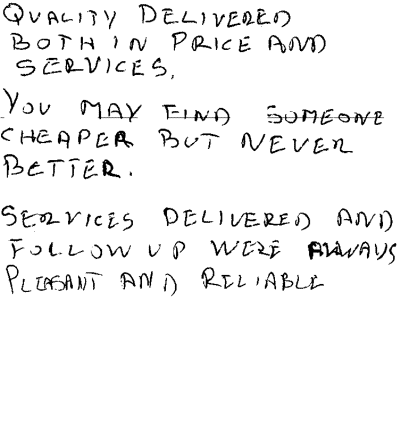 QUALITY DELIVERED
BOTH IN PRICE AND
SERVICES.
YOU MAY FIND SOMEONE
CHEAPER BUT NEVER
BETTER.
SERVICES DELIVERED AND
FOLLOW UP WERE ALWAYS
PLEASANT AND RELIABLE